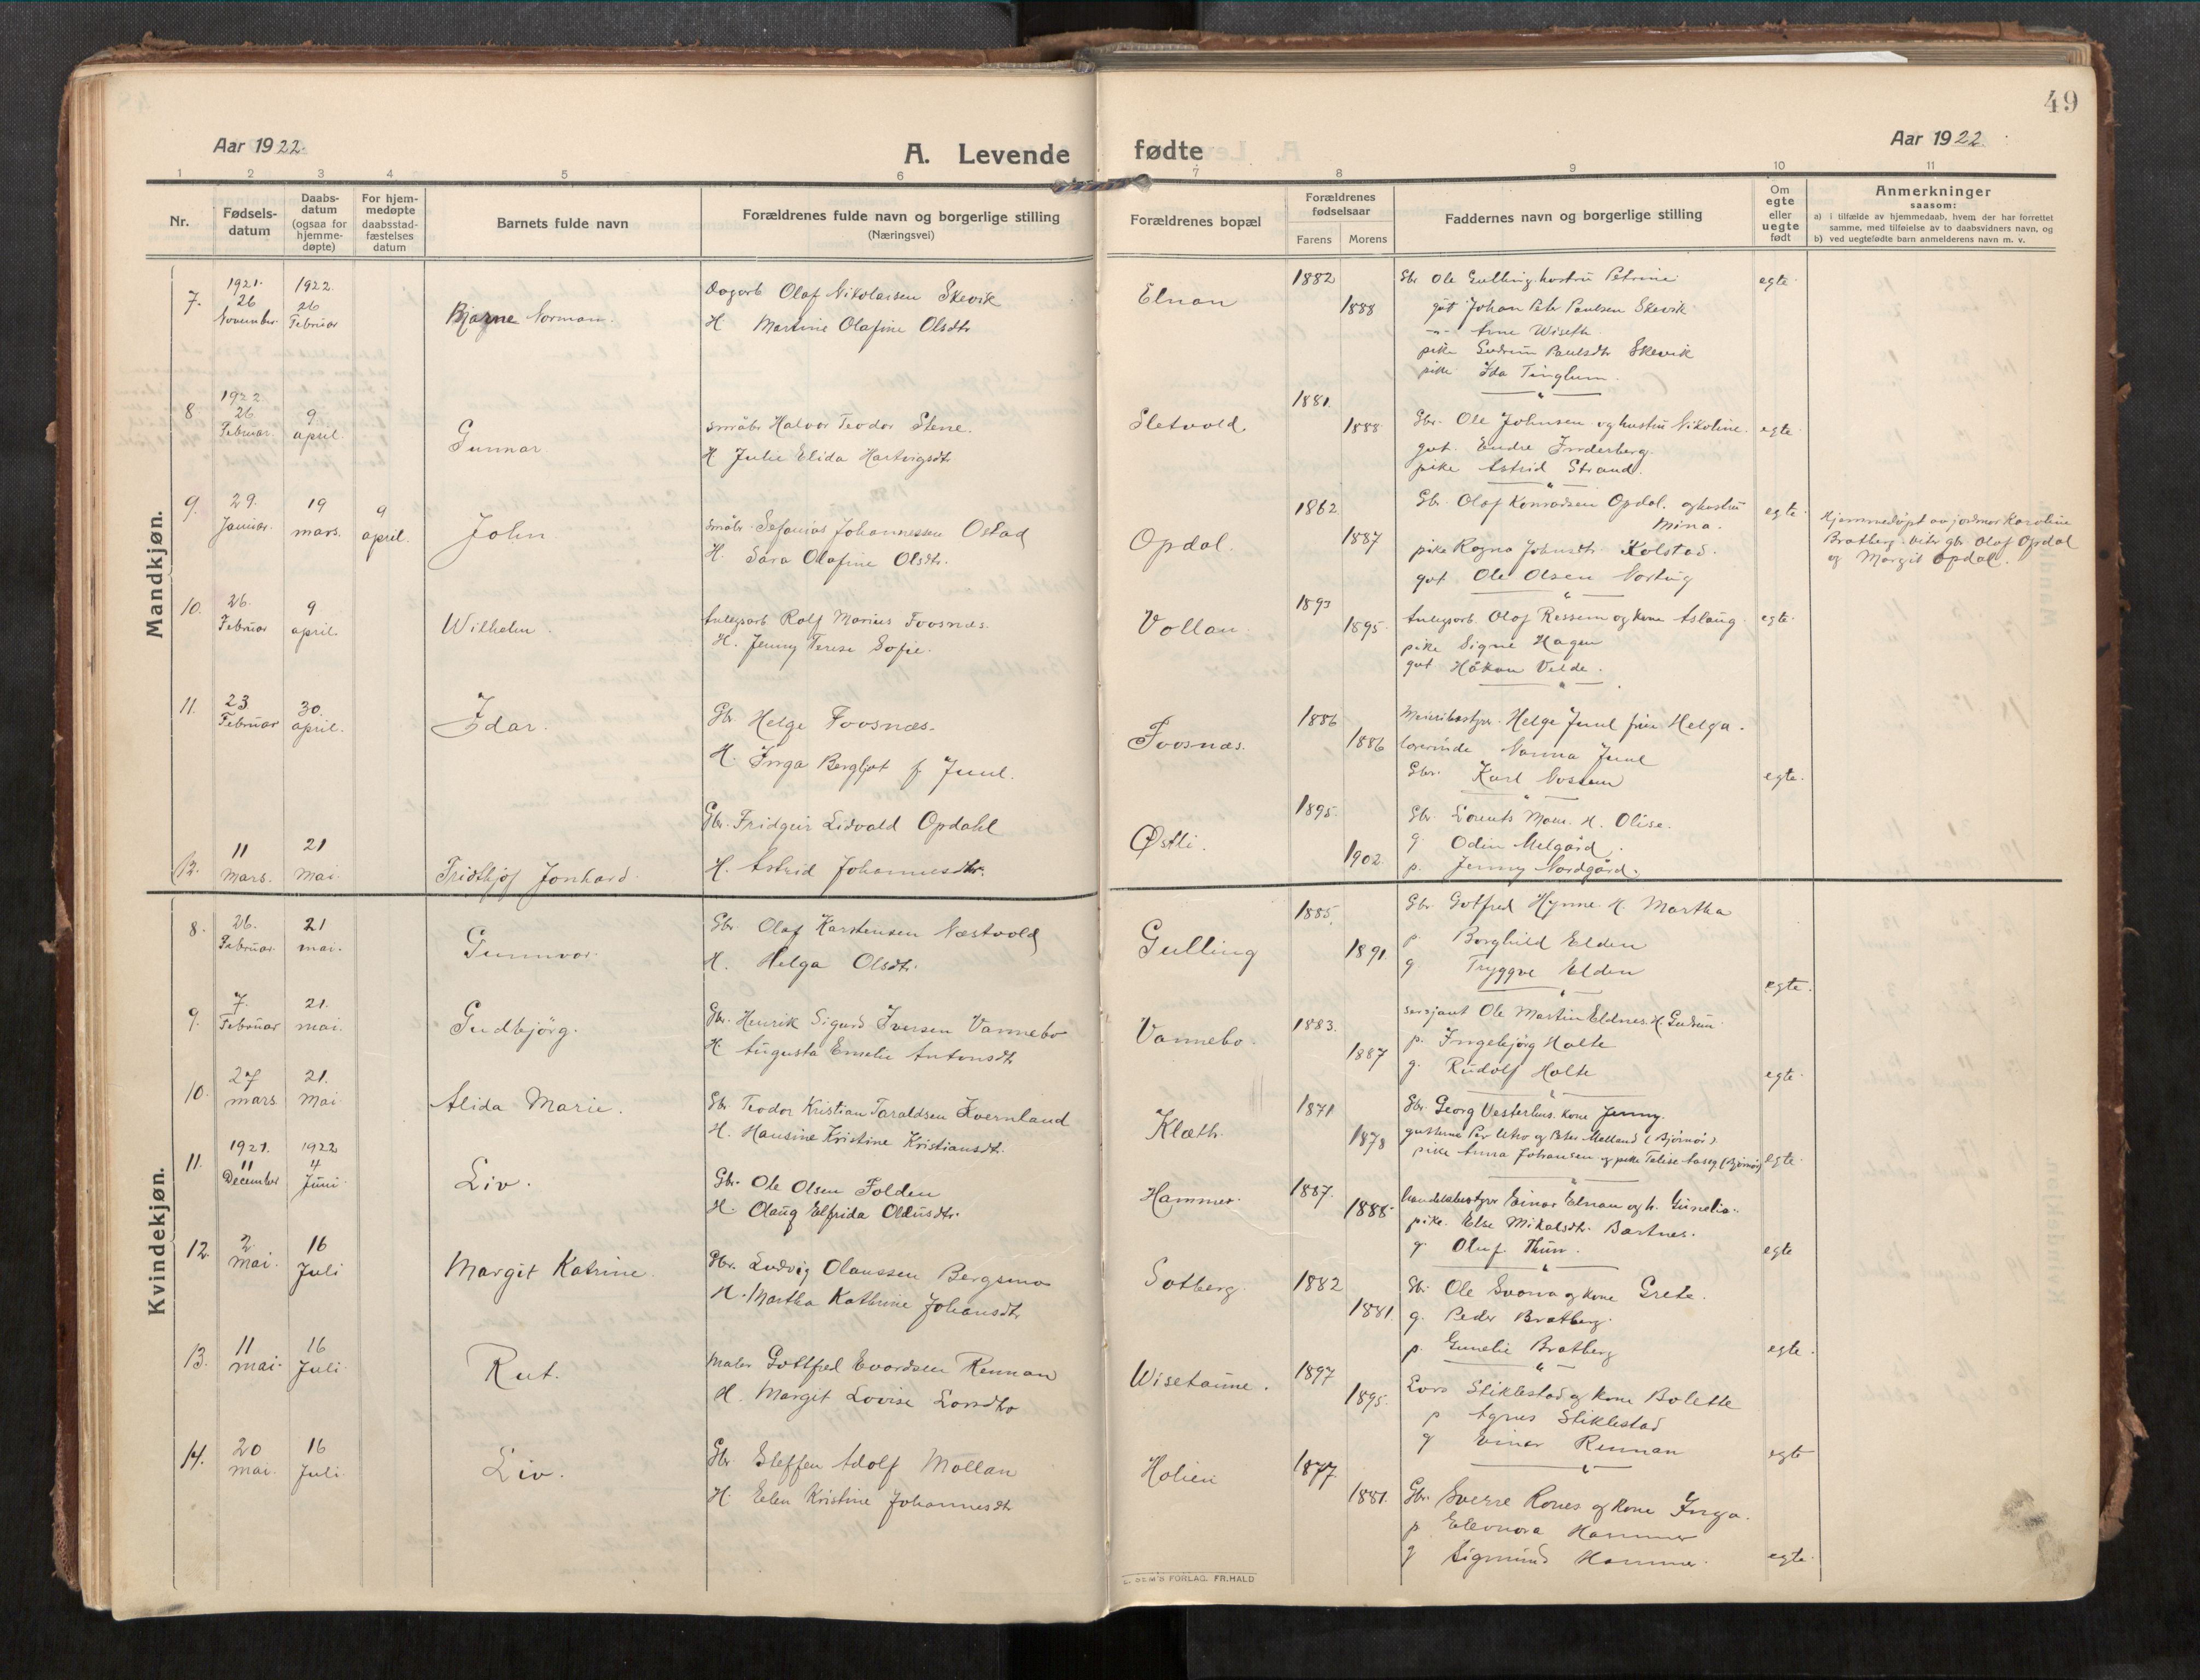 49
Aar 1922.
A. Levende
fødte
Aar 1922.
1 2 3 4 5 6 7 8 9 10 11
Nr.
Fødsels-
datum
Daabs-
datum
(ogsaa for
hjemme-
døpte)
For hjem-
medøpte
daabsstad-
fæstelses
datum
Barnets fulde navn
Forældrenes fulde navn og borgerlige stilling
(Næringsvei)
Forældrenes bopæl
Forældrenes
fødselsaar
Farens
Morens
Faddernes navn og borgerlige stilling
Om
egte
eller
uegte
født
Anmerkninger
saasom:
a) i tilfælde av hjemmedaab, hvem der har forrettet
samme, med tilføielse av to daabsvidners navn, og
b) ved uegtefødte barn anmelderens navn m. v.
Mandkjøn.
7.
1921.
26
November
1922.
26
Februar
Bjarne Norman.
Dagarb Olaf Nikolaisen Skevik
H Martine Olafine Olsdtr
Elnan
1882
1888
Gbr Ole Gulling hustru Petrine
gut Johan Peter Paulsen Skevik
-"- Arne Wiseth
pike Gudrun Paulsdtr Skevik
pike Ida Tinglum.
egte
8
1922
26
Februar.
9.
april
Gunnar
småbr Halvor Teodor Stene.
H Julie Elida Hartvigsdtr
Sletvold.
1881.
1888
Gbr. Ole Johnsen og hustru Nikoline.
gut. Endre Inderberg.
pike Astrid Strand.
egte
9.
29.
Januar.
19
mars.
9
april.
John
småbr. Sefanias Johannessen Ostad
H. Sara Olafine Olsdtr.
Opdal.
1862
1887
Gbr. Olaf Konradsen Opdal. og hustru
Mina.
pike Ragna Johnsdtr. Kolstad.
gut Ole Olsen Nortug
egte
Hjemmedøpt av jordmor Karoline
Bratberg. Viter gbr. Olaf Opdal
og Margit Opdal.
10.
26.
Februar
9
april.
Wilhelm.
Anlegsarb Rolf Marius Foosnæs.
H. Jenny Terese Sofie.
Vollan.
1893
1895.
Anlegsarb. Olaf Ressem og kone Aslaug.
pike Signe Hagen
gut Håkon Velde.
egte
11.
23.
Februar
30.
april.
Idar.
Gbr. Helge Foosnæs.
H. Inga Bergljot f. Juul.
Foosnæs.
1886
1886
Meieribestyr. Helge Juul frue Helga.
lærerinde Nanna Juul
Gbr. Karl Nossum
egte.
12.
11
Mars.
21
Mai
Fridthjof Jonhard
Gbr. Fridgeir Lidvald Opdahl
H. Astrid Johannesdtr.
Østli.
1895.
1902.
Gbr. Lorents Moen. H. Olise.
g. Odin Melgård.
p. Jenny Nordgård.
Kvindekjøn.
8.
26.
Februar
21
mai.
Gunnvor
Gbr. Olaf Karstensen Næstvold
H. Helga Olsdtr.
Gulling
1885.
1891.
Gbr. Gotfred Hynne H. Martha
p. Borghild Elden
g Tryggve Elden
egte.
9.
7.
Februar
21.
mai.
Gudbjörg.
Gbr. Henrik Sigurd Iversen Vannebo
H Augusta Emelie Antonsdtr
Vannebo.
1883.
1887
sersjant Ole Martin Eldnes. H. Gudrun
p. Ingebjörg Holte
g. Rudolf Holte
egte.
10.
27
mars
21.
Mai
Alida Marie.
Gbr. Teodor Kristian Taraldsen Kvernland
H. Hansine Kristine Kristiansdtr.
Klæth.
1871
1878
Gbr. Georg Vesterhus. kone Jenny.
gutterne Per Utro og Peter Melland (Bjørnør).
pike Anna Johansen og pike Talise Aaseg (Bjørnør)
egte
11.
1921.
11
December
1922
4
Juni
Liv.
Gbr. Ole Olsen Folden
H. Olaug Elfrida Oleusdtr.
Hammer.
1887.
1888
handelsbestyrer Einar Elnan og h. Gunelia.
pike. Else Mikalsdtr. Bartnes.
g. Oluf Thun.
egte
12.
2.
mai.
16
Juli
Margit Katrine.
Gbr. Ludvig Olaussen Bergsmo
H. Martha Kathrine Johansdtr
Sotberg.
1882
1881.
Gbr. Ole Svarva og kone Grete.
g. Peder Bratberg.
p. Gunelie Bratberg
egte.
13.
11
mai.
16
Juli
Rut.
Maler Gottfred Evardsen Rennan
H. Margit Lovise Larsdtr
Wisetaune.
1897
1895.
Lars Stiklestad og kone Bolette
p Agnes Stiklestad
g Einar Rennan
egte
14.
20
mai.
16
Juli
Liv.
Gbr. Steffen Adolf Mollan
H. Elen Kristine Johannesdtr
Holien
1877.
1881.
Gbr. Sverre Rones og kone Inga.
p. Eleonora Hammer
g Sigmund Hammer.
egte.
SEM'S FORLAG. FR. HALD